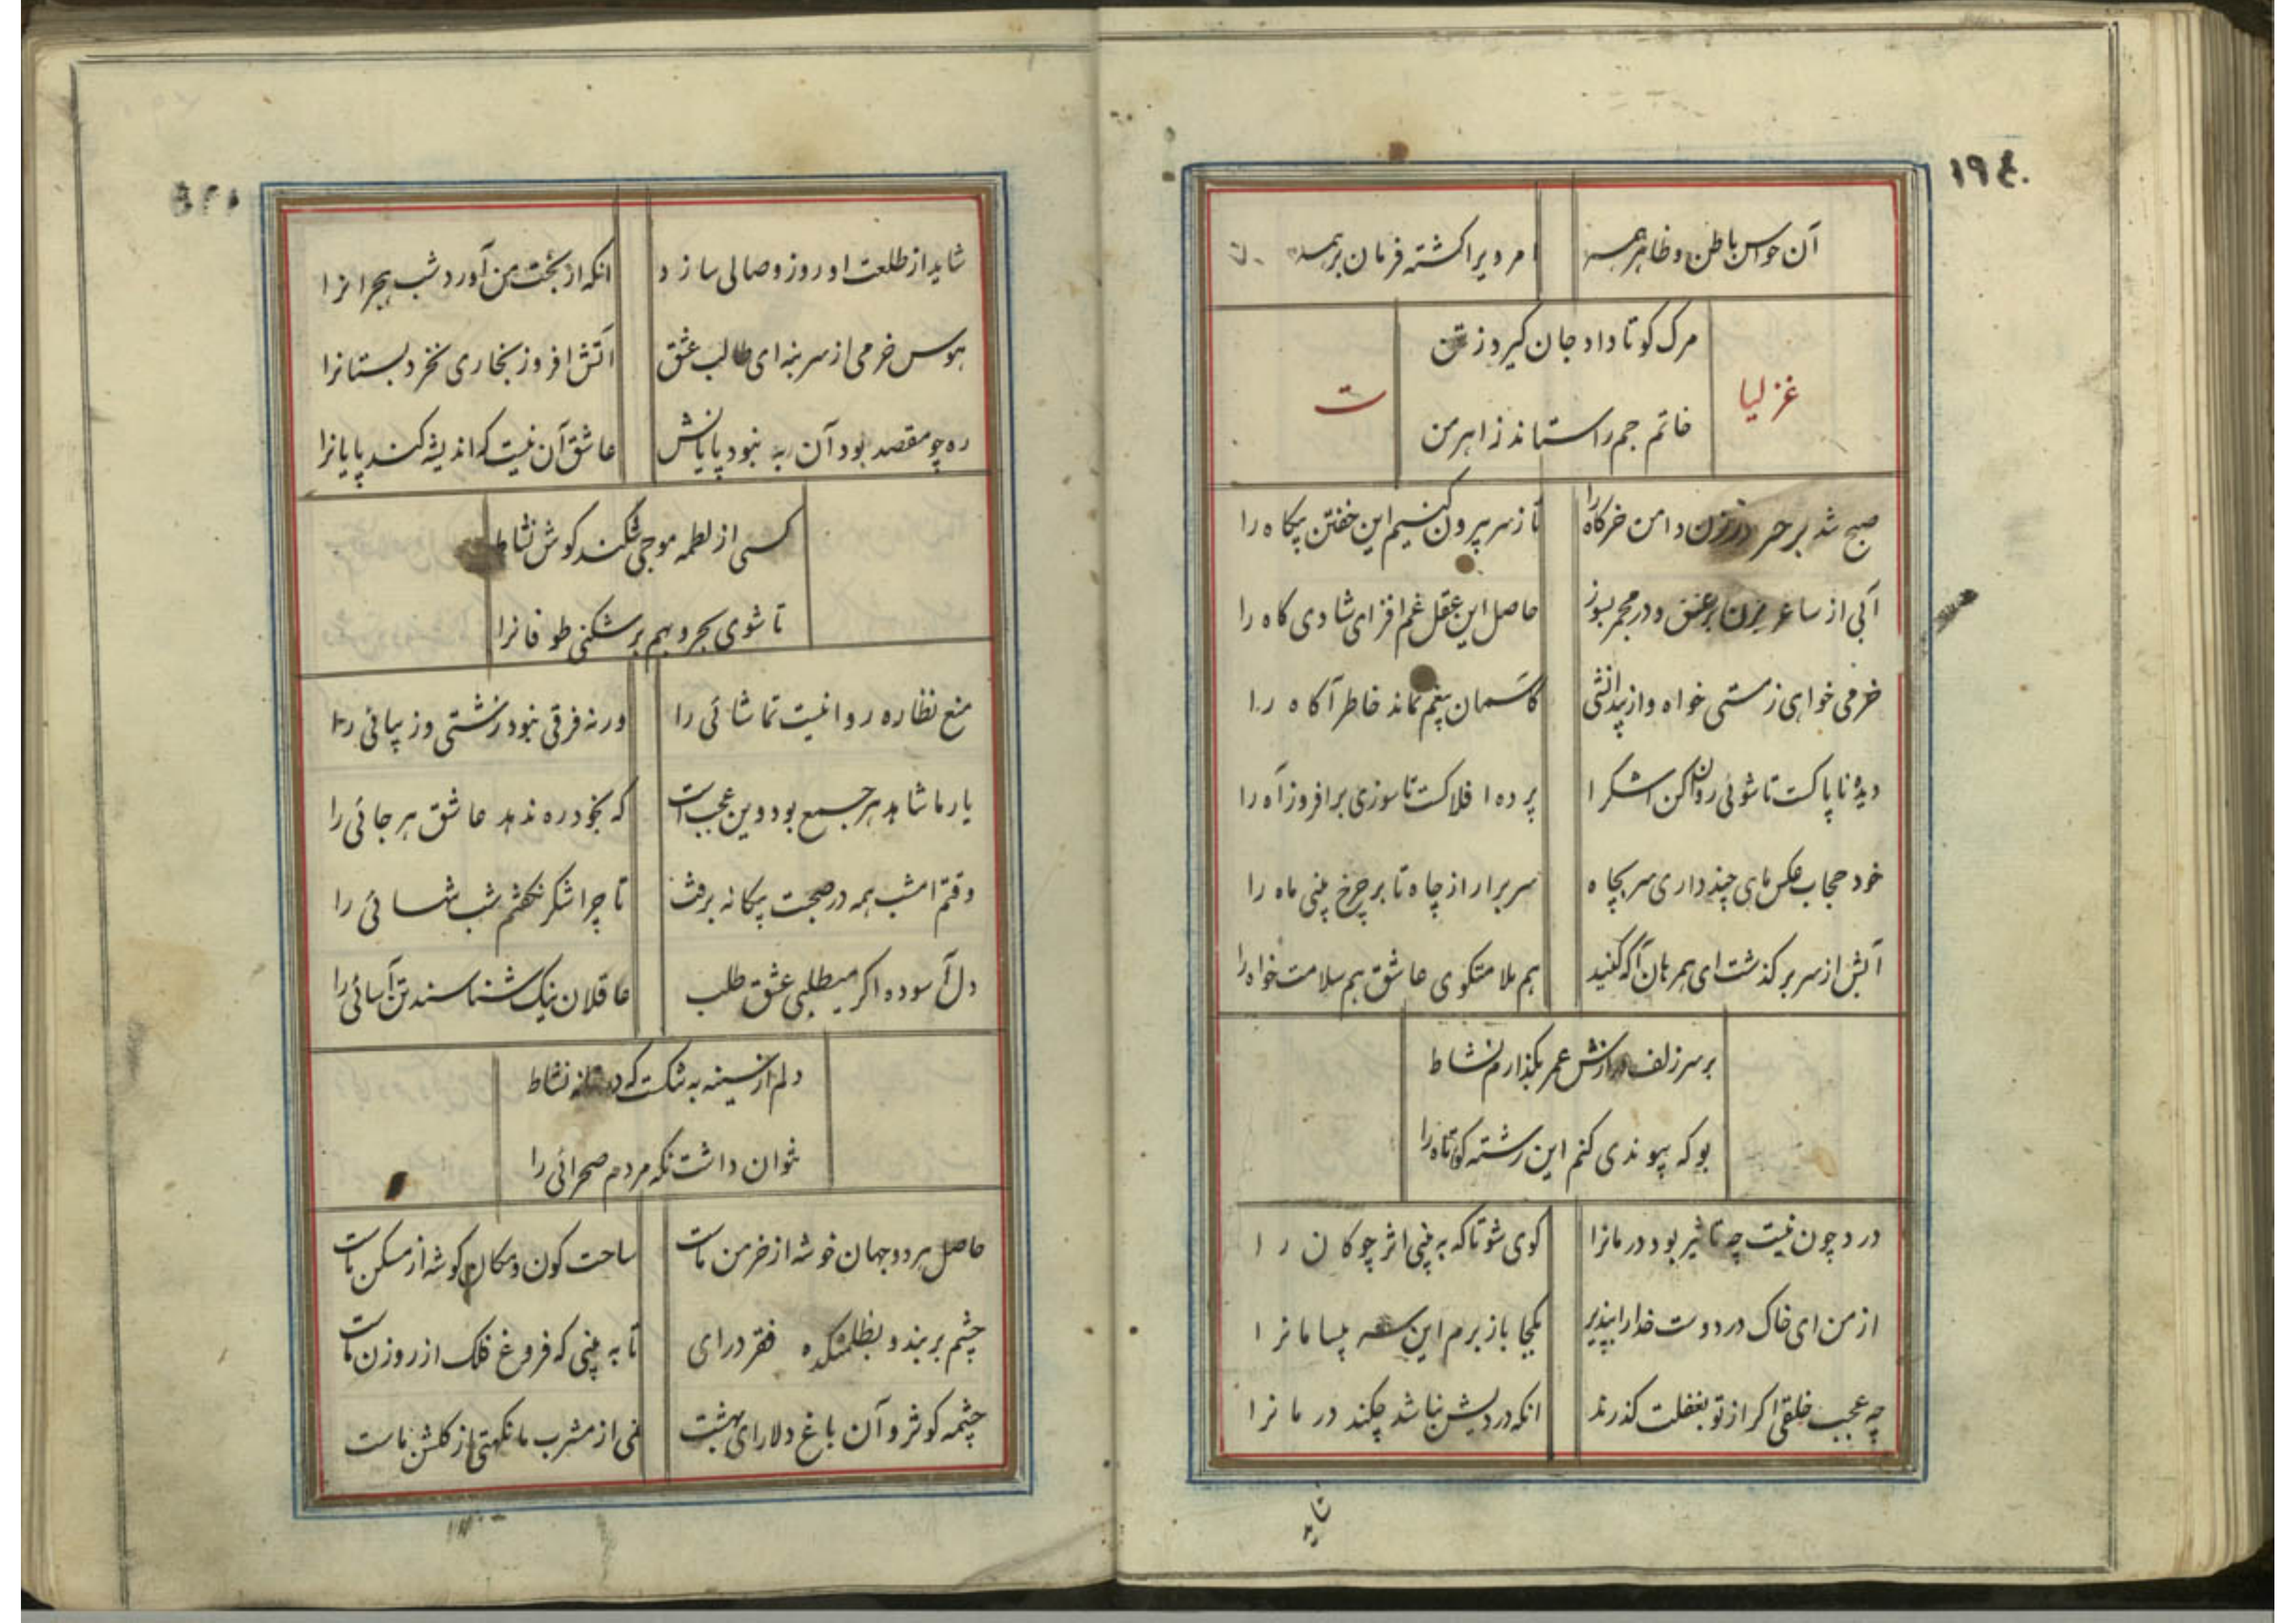 ۱۹٤
آن حواس باطن و ظاهر همه امر دیرا کشته فرمان بر همه
مرک کو تا داد جان کیرد ز تن
غزلیات
خاتم جم را ستاند ز اهرمن
صبح شد بر خر در زن دامن خرکاه را تا ز سر بیرون کنیم این خفتن بیکاه را
آبی از ساغر بزن بر عشق و در مجمر بسوز حاصل این عقل غم افزای شادی کاه را
خرمی خواهی ز مستی خواه و از بیدانشی کاسمان بیغم نماند خاطر آکاه را
دیده ناپاکست تا شوئی روان کن اشکرا پرده افلاکست تا سوزی برافروز آه را
خود حجاب عکس ماهی چند داری سر بچاه سر برار از چاه تا بر چرخ بینی ماه را
آبش از سر بر کذشت ای همرهان آکه کنید هم ملامتکوی عاشق هم سلامت خواه را
بر سر زلف درازش عمر بکذارم نشاط
بو که پیوندی کنم این رشته کوتاه را
درد چون نیست چه تاثیر بود درمانرا کوی شو تا که به بینی اثر چوکان را
از من ای خاک در دوست خدارا بپذیر بکجا باز برم این سر بیسامانرا
چه عجب خلقی اکر از تو بغفلت کذرند انکه دردیش نباشد چکند درمانرا
شاید
شاید از طلعت او روز وصالی سازد انکه از بخت من آورد شب هجرانرا
هوس خرمی از سر بنه ای طالب عشق اتش افروز بخاری نخرد بستانرا
ره چو مقصد بود آن به نبود پایانش عاشق آن نیست که اندیشه کند پایانرا
کستی از لطمه موجی شکند کوش نشاط
تا شوی بحر و بهم بر شکنی طوفانرا
منع نظاره روا نیست تماشائی را ورنه فرقی نبود زشتی و زیبائی را
یار ما شاهد هر جمع بود وین عجب است که بخود ره ندهد عاشق هر جائی را
وقتم امشب همه در صحبت بیکانه برفت تا چرا شکر نکفتم شب تنهائی را
دل آسوده اکر میطلبی عشق طلب عاقلان نیک شناسند تن آسائی را
دلم از سینه به تنکست که دیوانه نشاط
نتوان داشت نکه مردم صحرائی را
حاصل هر دو جهان خوشه از خرمن ماست ساحت کون و مکان کوشه از مسکن ماست
چشم بر بند و بظلمتکده فقر درای تا به بینی که فروغ فلک از روزن ماست
چشمه کوثر و آن باغ دلارای بهشت نمی از مشرب ما نکهتی از کلشن ماست